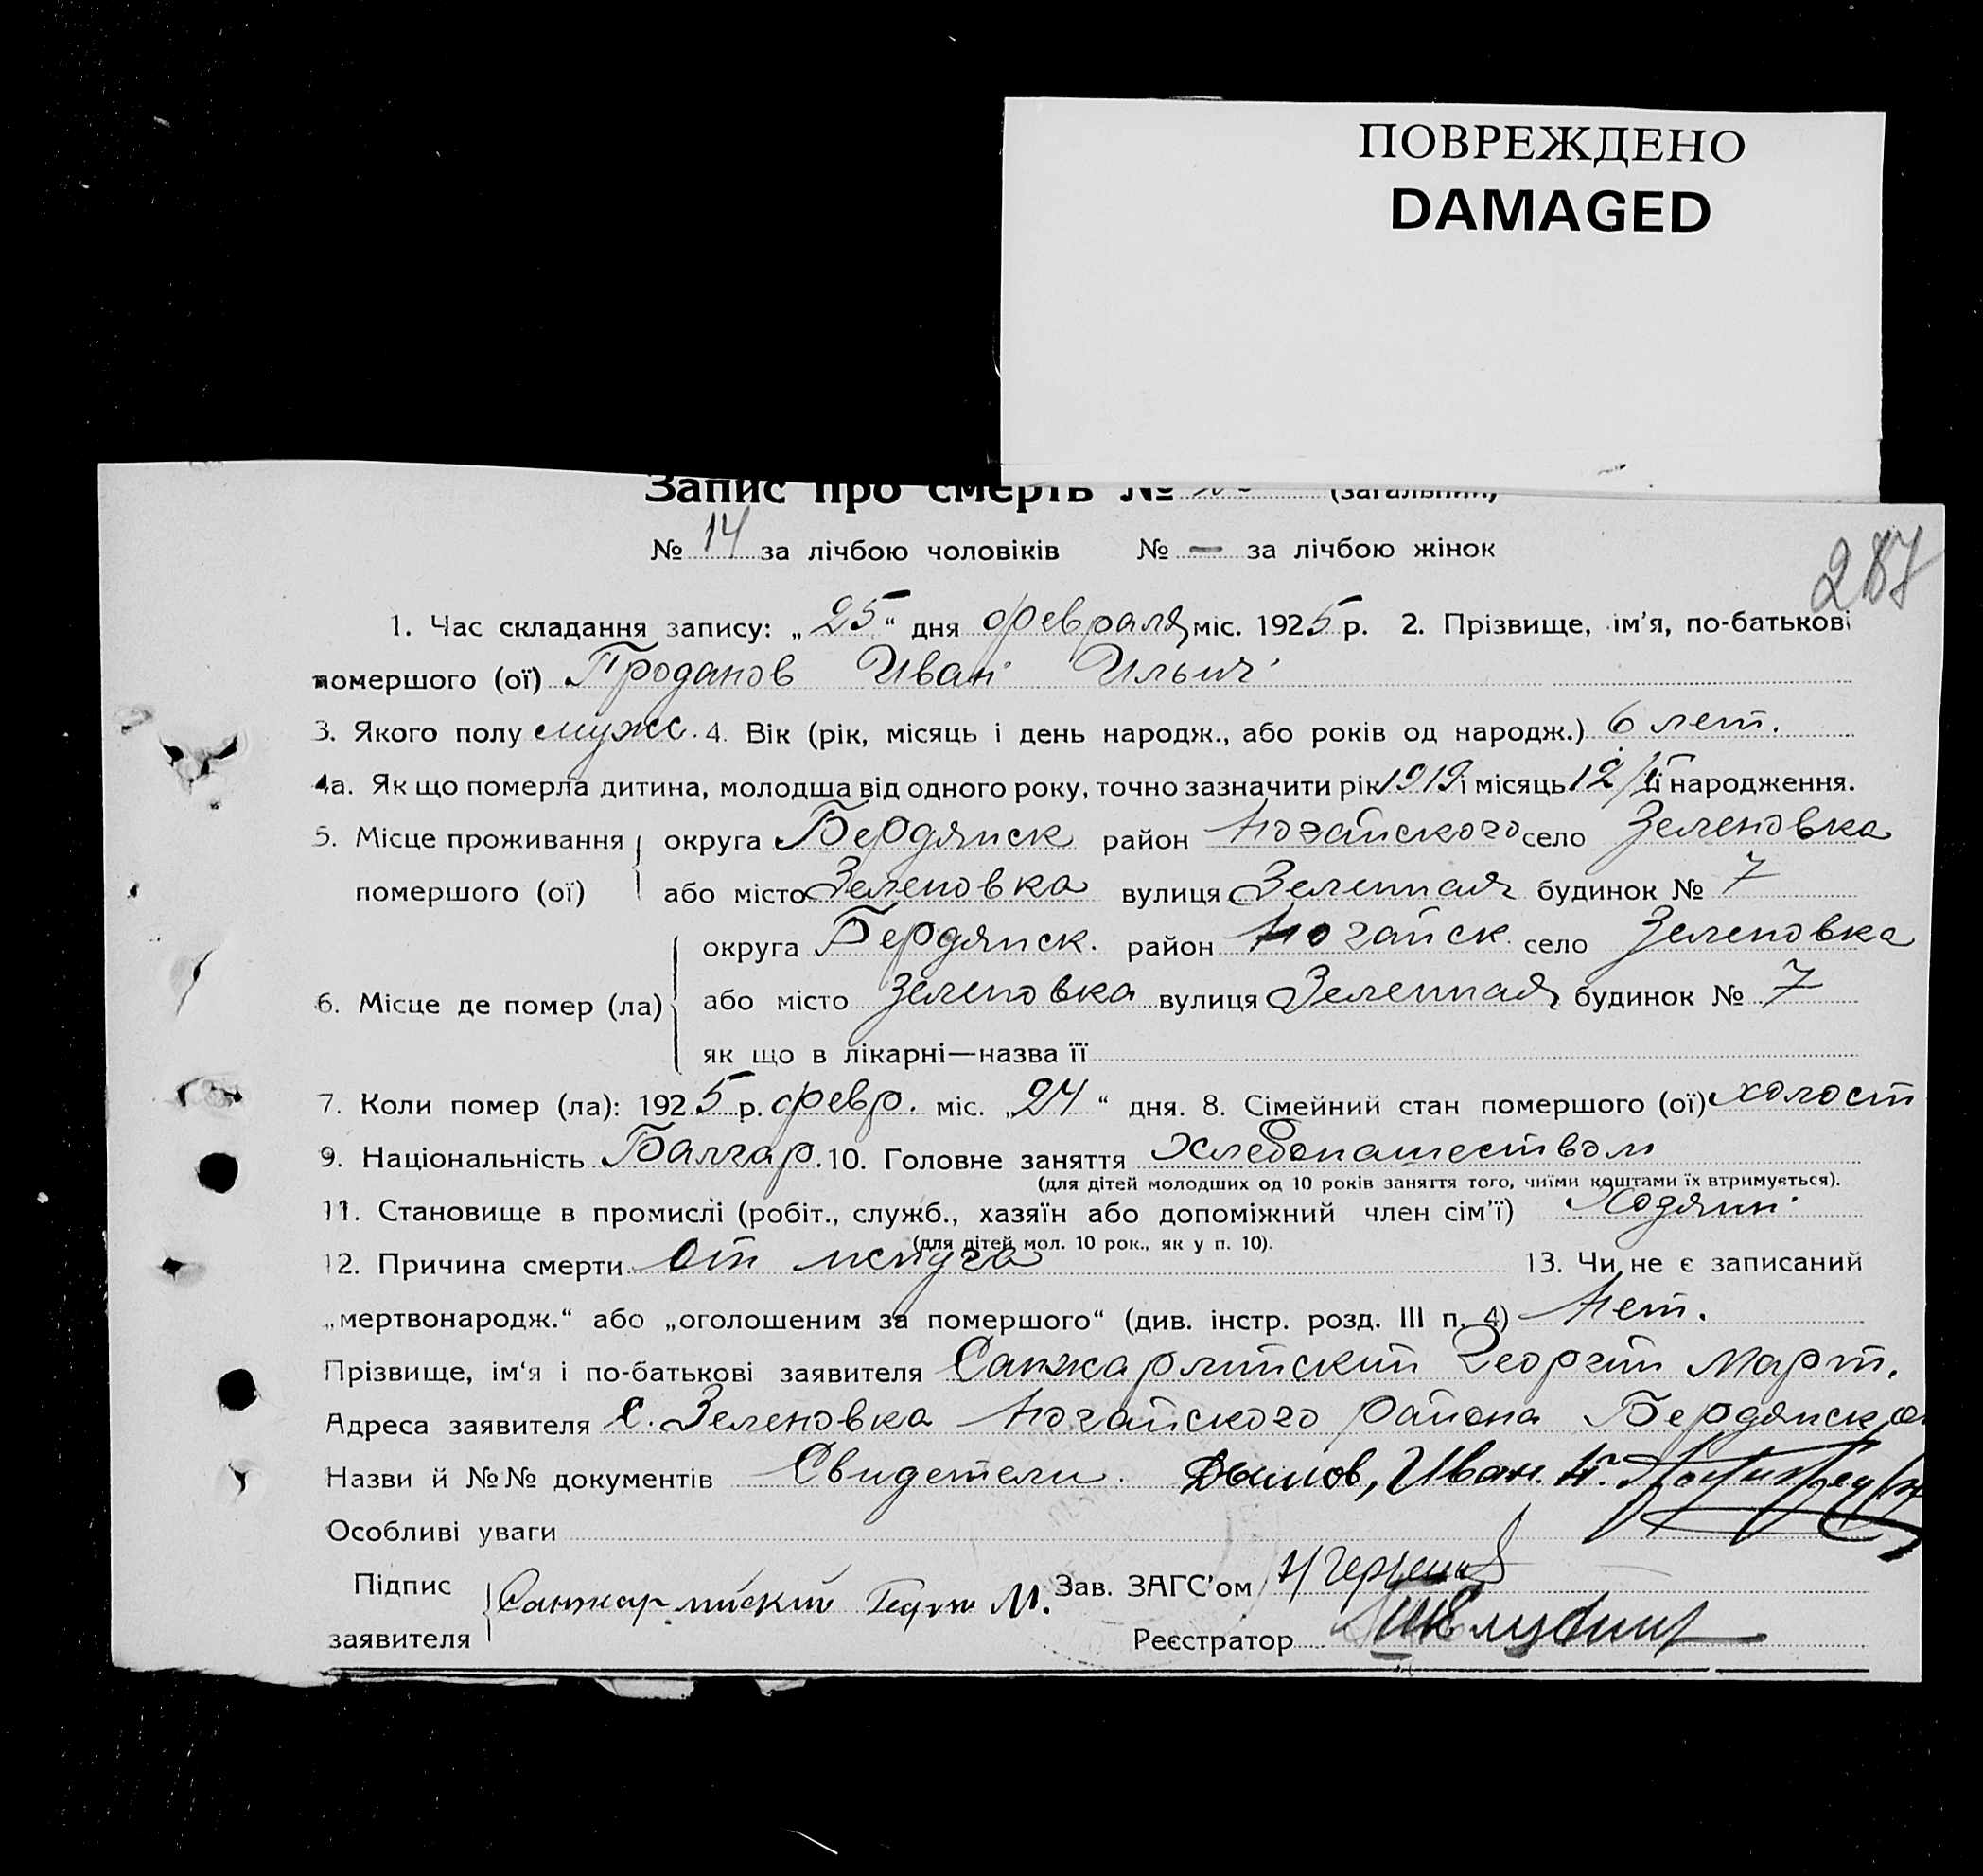 ПОВРЕЖДЕНО
DAMAGED
Запис про смерть № (загальний)
№ 14 за лічбою чоловіків № — за лічбою жінок
287
1. Час складання запису: „25“ дня февраля міс. 1925 р. 2. Прізвище, ім'я, по-батькові
помершого (ої) Проданов Иван Ильич
3. Якого полу мужс. 4. Вік (рік, місяць і день народж., або років од народж.) 6 лет.
4а. Як що померла дитина, молодша від одного року, точно зазначити рік 1919 і місяць 12/ її народження.
5. Місце проживання округа Бердянск район Ногайского село Зеленовка
помершого (ої) або місто Зеленовка вулиця Зеленная будинок № 7
округа Бердянск. район Ногайск. село Зеленовка
6. Місце де помер (ла) або місто Зеленовка вулиця Зеленная будинок № 7
як що в лікарні—назва її
7. Коли помер (ла): 1925 р. февр. міс. „24“ дня. 8. Сімейний стан помершого (ої) холост
9. Національність Балгар. 10. Головне заняття Хлебопашеством
(для дітей молодших од 10 років заняття того, чиїми коштами їх втримується).
11. Становище в промислі (робіт., служб., хазяїн або допоміжний член сім'ї) Хозяин
(для дітей мол. 10 рок., як у п. 10).
12. Причина смерти от испуга 13. Чи не є записаний
„мертвонародж.“ або „оголошеним за помершого“ (див. інстр. розд. III п. 4) Нет.
Прізвище, ім'я і по-батькові заявителя Санжарлийский Георгий Март.
Адреса заявителя С. Зеленовка Ногайского района Бердянск о.
Назви й №№ документів Свидетели. Дымов, Иван. Н.
Особливі уваги
Підпис Санжарлийский Георги М. Зав. ЗАГС'ом
заявителя Реєстратор